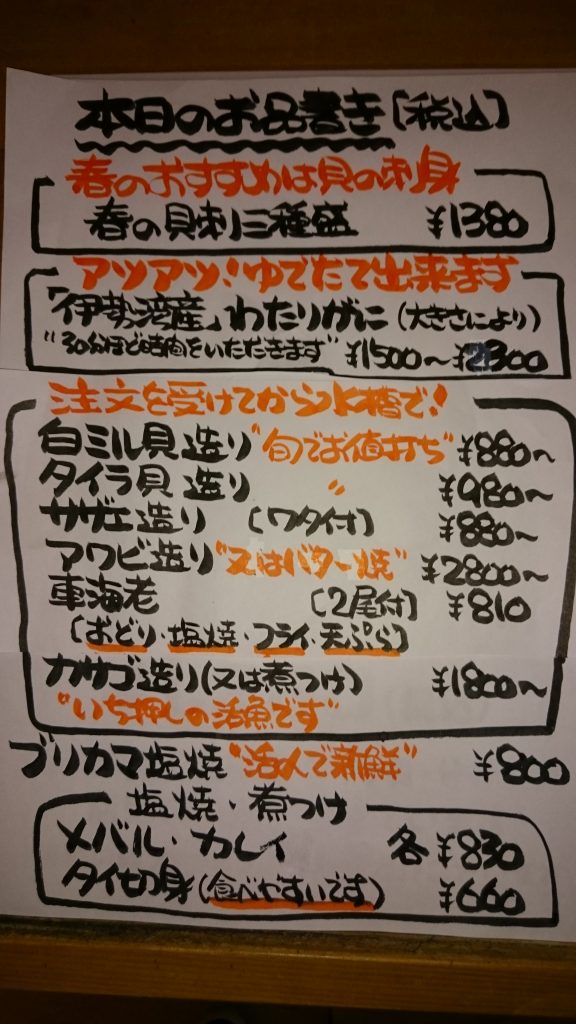 本日のお品書き〔税込〕
春のおすすめは貝の刺身
春の貝刺三種盛 ¥1380
アツアツ!ゆでたて出来ます
「伊勢湾産」わたりがに(大きさにより)
"30分ほど時間をいただきます" ¥1500〜¥2300
注文を受けてから水槽で!
白ミル貝造り"旬でお値打ち" ¥880〜
タイラ貝造り 〃 ¥980〜
サザエ造り 〔ワタ付〕 ¥880〜
アワビ造り"又はバター焼" ¥2800〜
車海老 〔2尾付〕 ¥810
〔おどり・塩焼・フライ・天ぷら〕
カサゴ造り(又は煮つけ) ¥1800〜
"いち押しの活魚です"
ブリカマ塩焼"活〆で新鮮" ¥800
塩焼・煮つけ
メバル・カレイ 各¥830
タイ切身(食べやすいです) ¥660